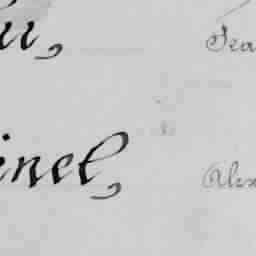 u,
Sea
inel,
Alex